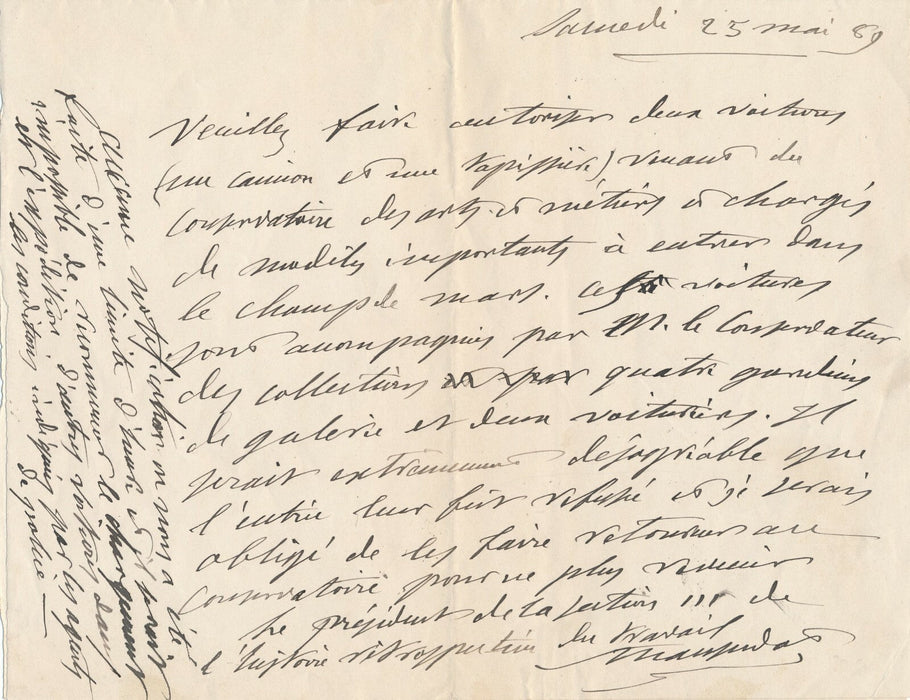 Samedi 25 mai 89
Veuillez faire autoriser deux voitures
(un camion et une tapissière) venant du
Conservatoire des arts et métiers et chargés
de modèles importants à entrer dans
le champ de mars. Ces voitures
sont acompagnées par M. le Conservateur
des collections quatre gardiens
de galerie et deux voituriers. Il
serait extrêmement désagréable que
l'entrée leur fut refusée et je serais
obligé de les faire retourner au
Conservatoire pour ne plus revenir
Le président de la section III de
l'histoire rétrospective du travail
Aucune notification ne nous a été
faite d'une limite d'heure et il serait
impossible de recommencer le chargement
et l'expédition d'autres voitures dans
les conditions indiquées par les agents
de police